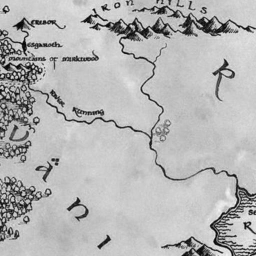 IRON HILLS
EREBOR
esgaroth
mountains of mirkwood
River Running
R
D
Ä
N
I
SE
R